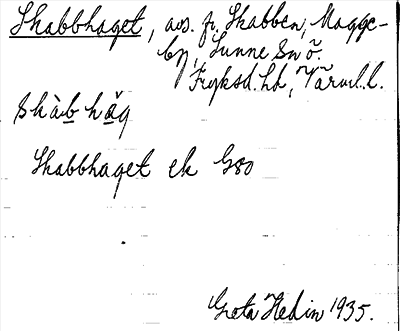 Skabbhaget, avs. fr. Skabben, Magge-
by, Sunne sn ö.
Fryksd. hd, Värml. l.
skàb hăg
Skabbhaget ek G80
Greta Hedin 1935.